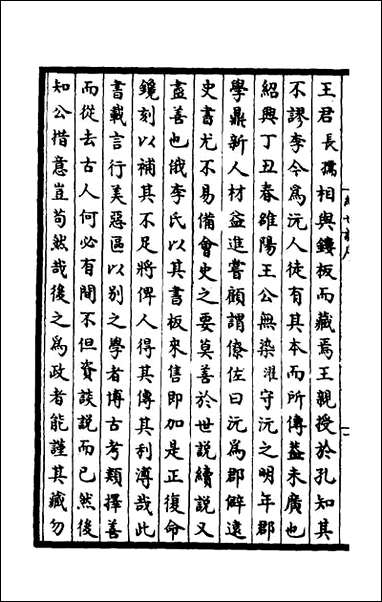 王君長孺相與鏤板而藏焉王親授於孔知其
不謬李今爲沅人徒有其本而所傳葢未廣也
紹興丁丑春雒陽王公無染濯守沅之明年郡
學鼎新人材益進嘗顧謂僚佐曰沅爲郡僻遠
史書尤不易備會史之要莫善於世説續説又
盡善也俄李氏以其書板來售即加是正復命
鑱刻以補其不足將俾人得其傳其利溥哉此
書載言行美惡區以别之學者博古考類擇善
而從去古人何必有間不但資談説而已然後
知公措意豈苟然哉後之爲政者能謹其藏勿